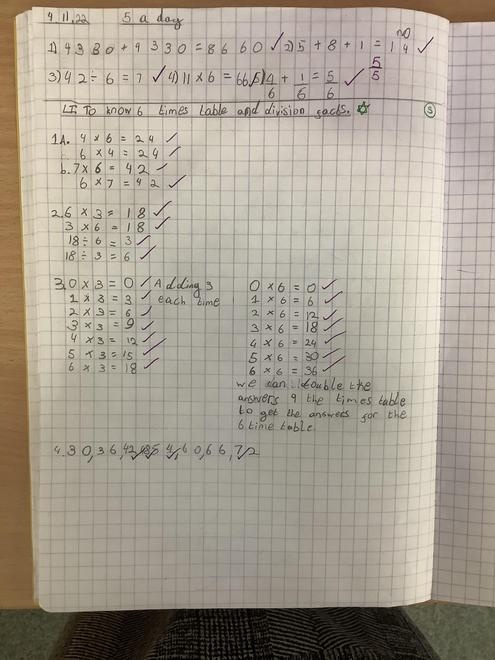 4.11.22 5 a day
no
1) 4330 + 4330 = 8660 ✓ 2) 5 + 8 + 1 = 14 ✓
5/5
3) 42 ÷ 6 = 7 ✓ 4) 11 × 6 = 66 5) 4/6 + 1/6 = 5/6 ✓
LI: To know 6 times table and division facts.
1A. 4 × 6 = 24 ✓
6 × 4 = 24 ✓
b. 7 × 6 = 42 ✓
6 × 7 = 42 ✓
2. 6 × 3 = 18 ✓
3 × 6 = 18 ✓
18 ÷ 6 = 3 ✓
18 ÷ 3 = 6 ✓
3. 0 × 3 = 0 ✓ Adding 3
1 × 3 = 3 ✓ each time
2 × 3 = 6 ✓
3 × 3 = 9 ✓
4 × 3 = 12 ✓
5 × 3 = 15 ✓
6 × 3 = 18 ✓
0 × 6 = 0 ✓
1 × 6 = 6 ✓
2 × 6 = 12 ✓
3 × 6 = 18 ✓
4 × 6 = 24 ✓
5 × 6 = 30 ✓
6 × 6 = 36 ✓
we can double the
answers the times table
to get the answers for the
6 time table.
4. 30, 36, 42, 60, 66, 72